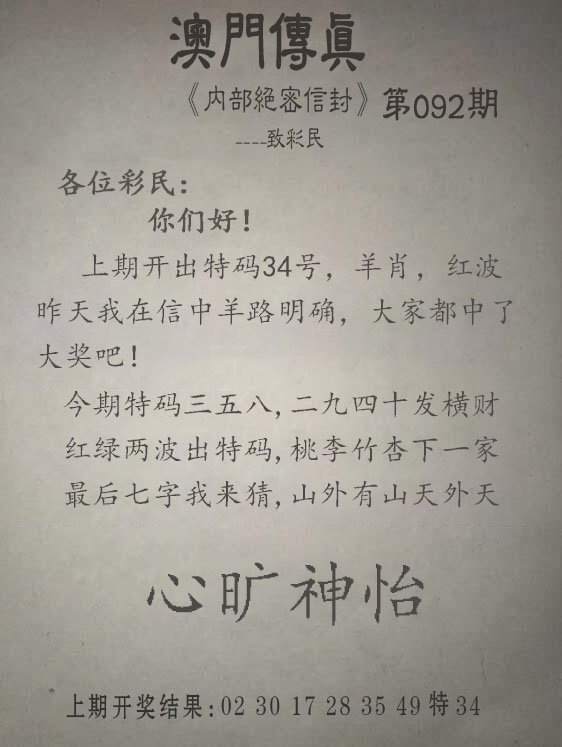 澳門傳眞
《内部絕密信封》第092期
----致彩民
各位彩民：
你们好！
上期开出特码34号，羊肖，红波
昨天我在信中羊路明确，大家都中了
大奖吧！
今期特码三五八,二九四十发横财
红绿两波出特码,桃李竹杏下一家
最后七字我来猜,山外有山天外天
心旷神怡
上期开奖结果:02 30 17 28 35 49 特34